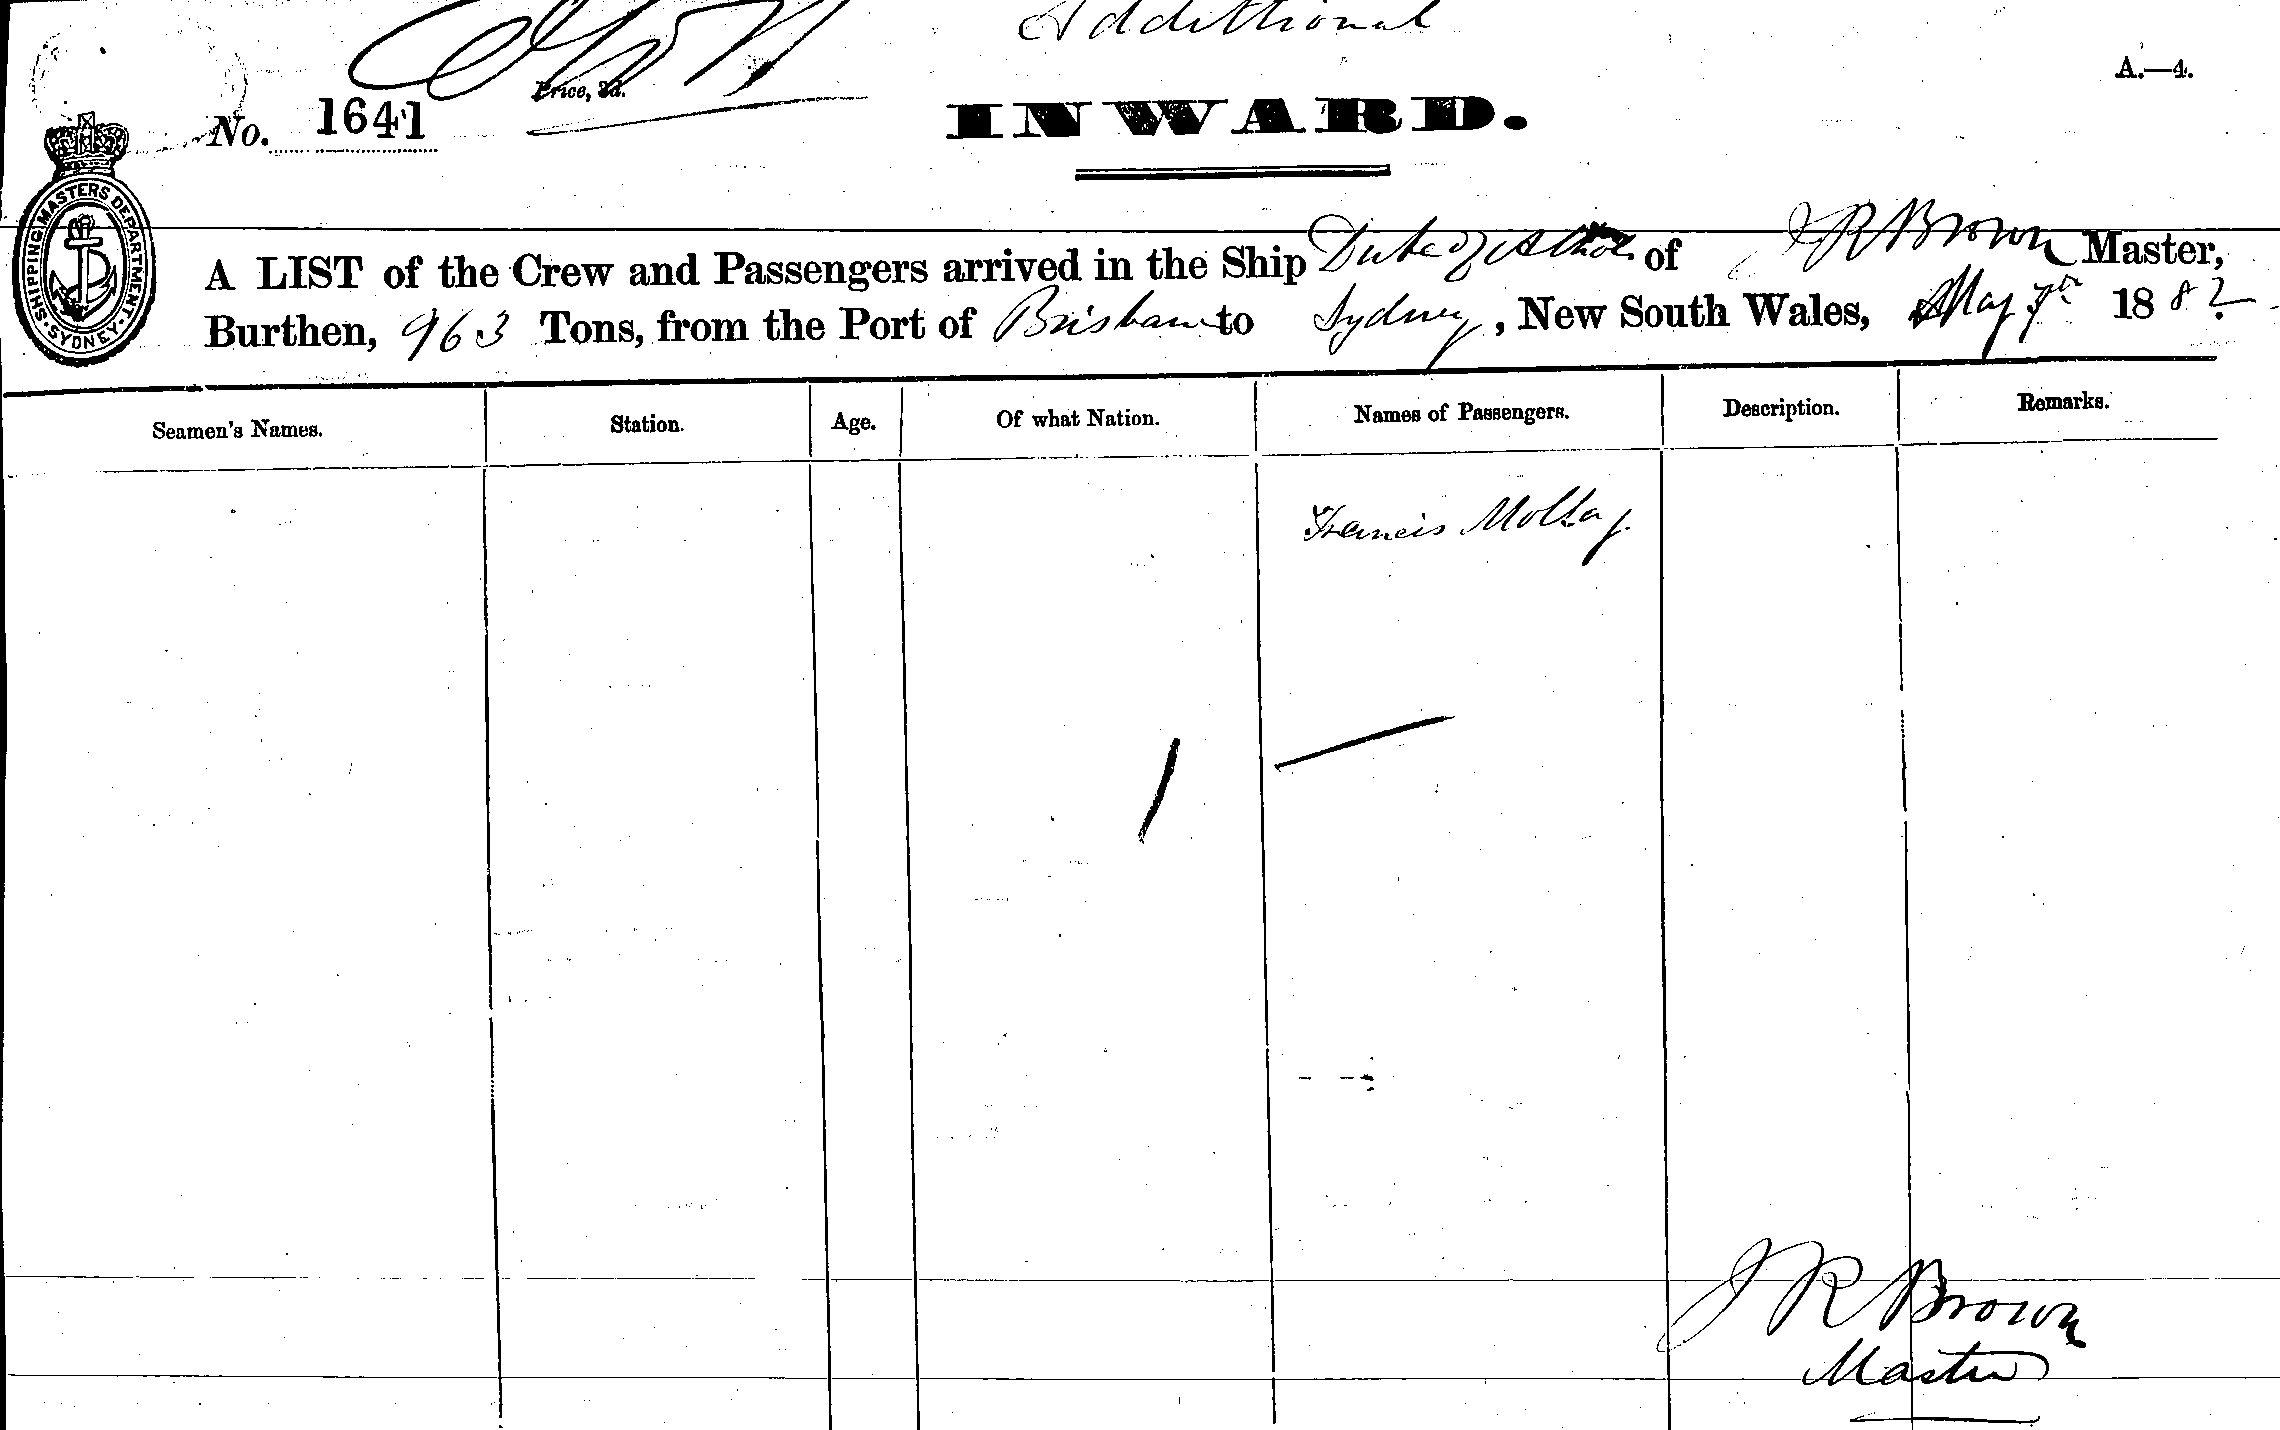 Additional
A.—4.
Price, 3d.
No. 1641
INWARD.
SHIPPING MASTERS DEPARTMENT. SYDNEY.
A LIST of the Crew and Passengers arrived in the Ship Duke of Athole of J R Brown Master,
Burthen, 963 Tons, from the Port of Brisbane to Sydney, New South Wales, May 7th 1882
Seamen's Names. Station. Age. Of what Nation. Names of Passengers. Description. Remarks.
Francis Molloy.
J R Brown
Master